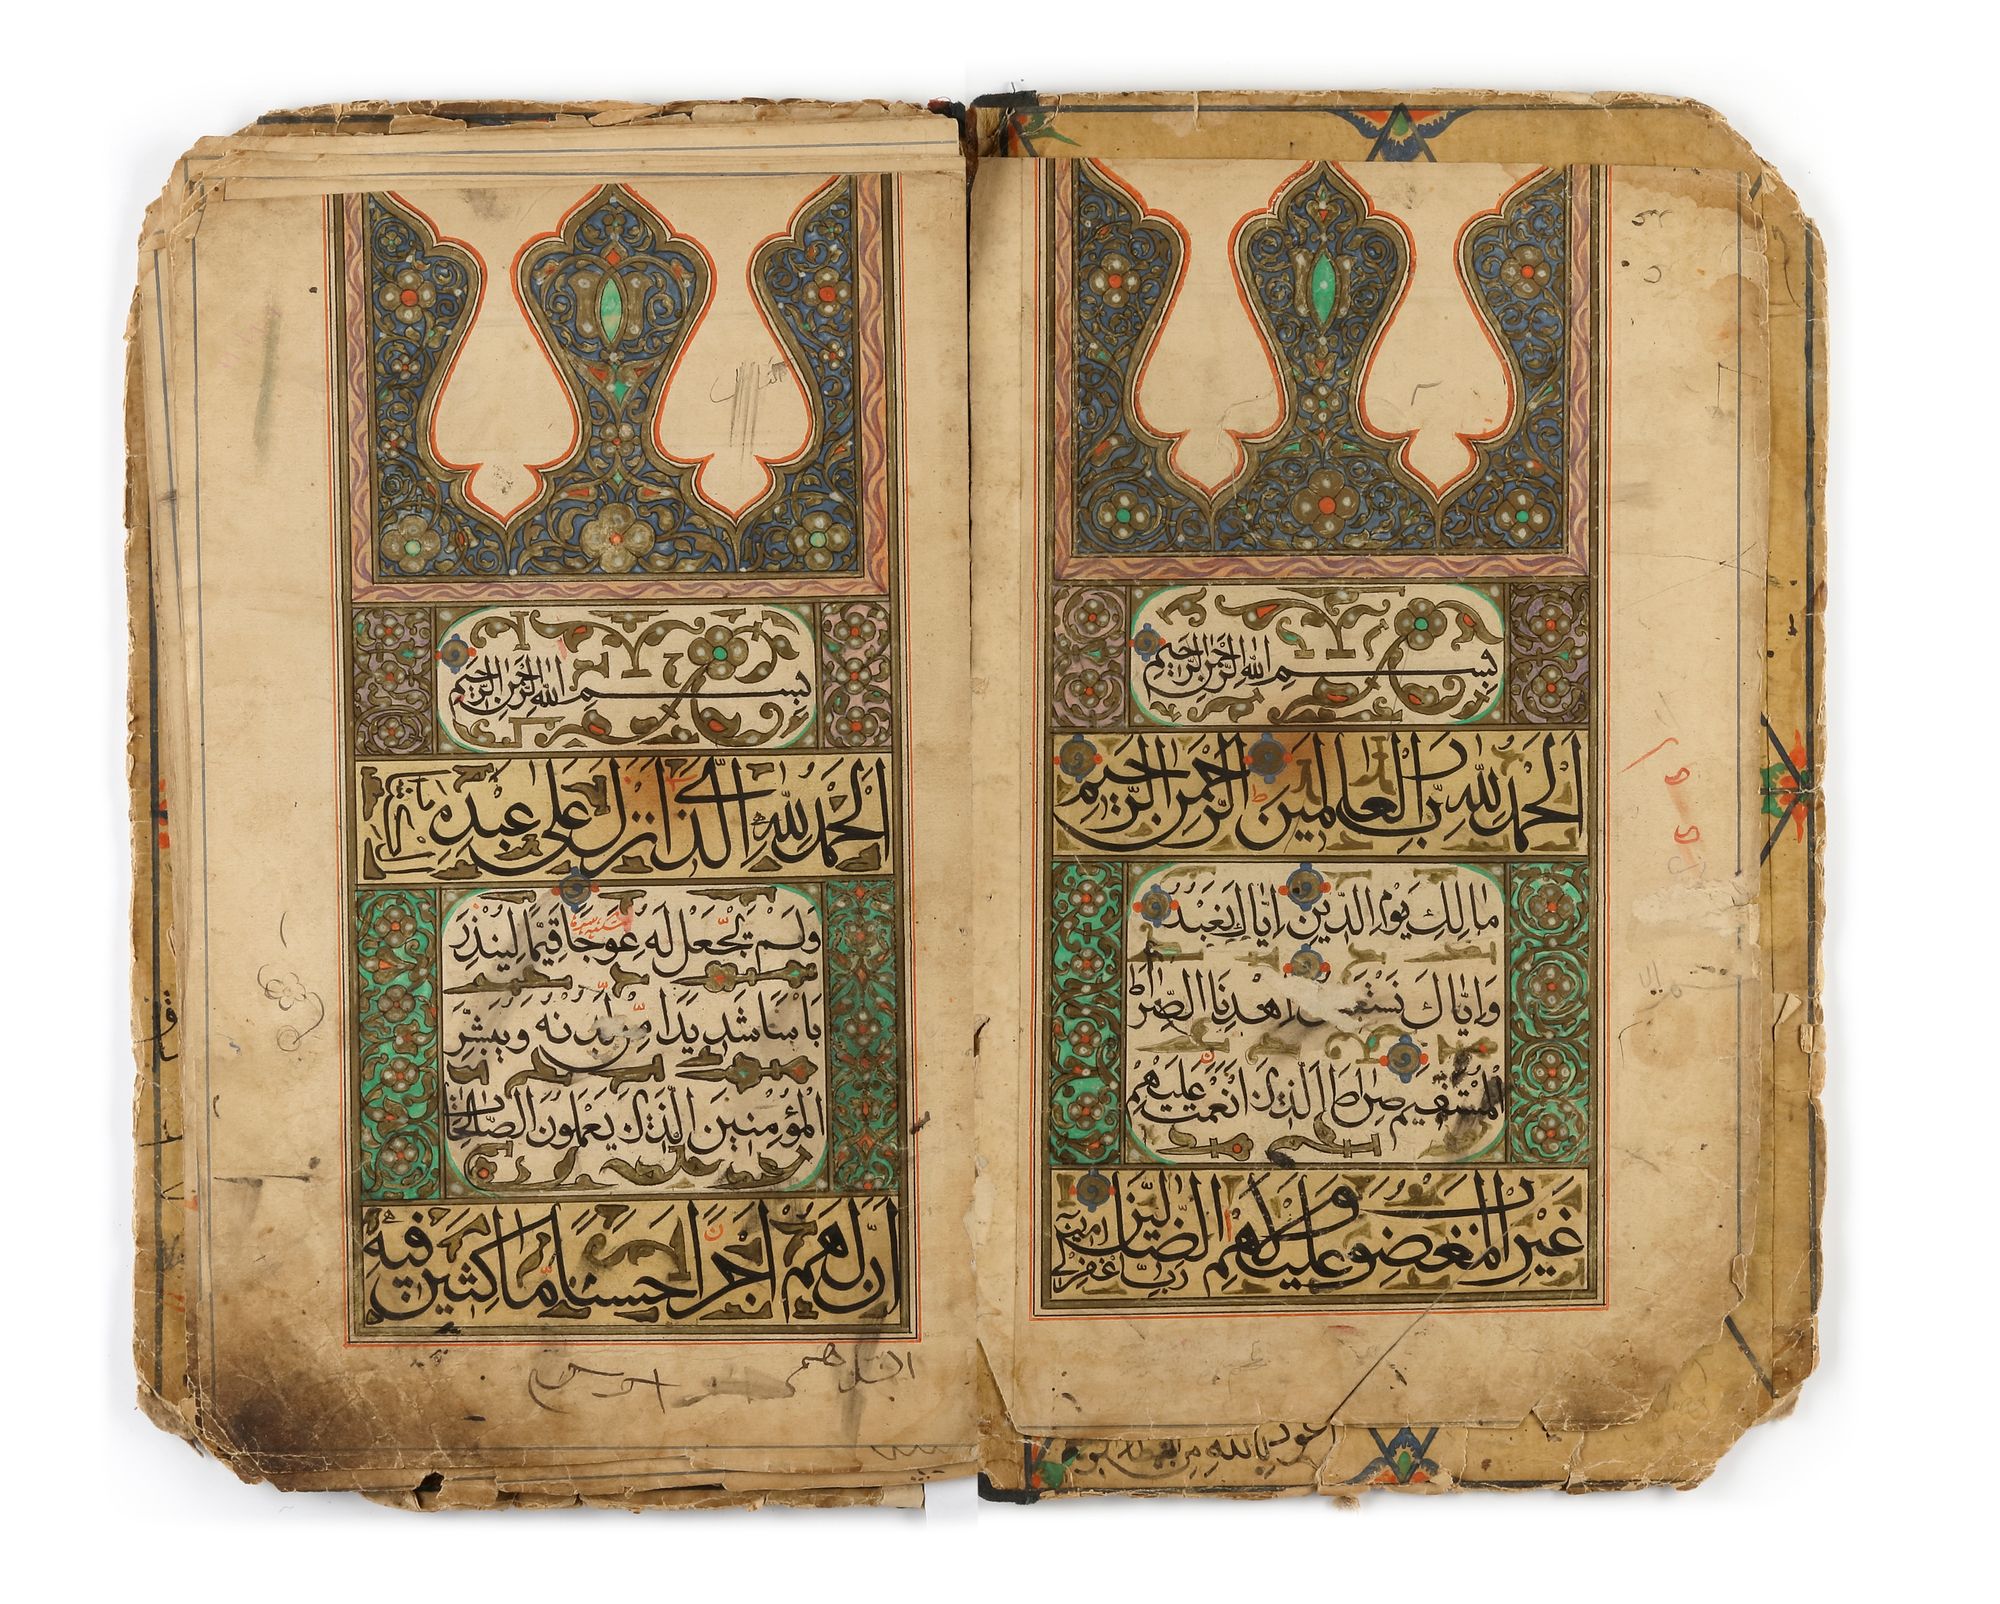 بِسْمِ اللهِ الرَّحْمٰنِ الرَّحِيمِ
اَلْحَمْدُ لِلّٰهِ رَبِّ الْعَالَمِينَ الرَّحْمٰنِ الرَّحِيمِ
مَالِكِ يَوْمِ الدِّينِ اِيَّاكَ نَعْبُدُ
وَاِيَّاكَ نَسْتَعِينُ اِهْدِنَا الصِّرَاطَ
الْمُسْتَقِيمَ صِرَاطَ الَّذِينَ اَنْعَمْتَ عَلَيْهِمْ
غَيْرِ الْمَغْضُوبِ عَلَيْهِمْ وَلَا الضَّالِّينَ آمين
رب اغفر لى
اعوذ بالله من
بِسْمِ اللهِ الرَّحْمٰنِ الرَّحِيمِ
اَلْحَمْدُ لِلّٰهِ الَّذِى اَنْزَلَ عَلَى عَبْدِهِ الْكِتَابَ
وَلَمْ يَجْعَلْ لَهُ عِوَجًا قَيِّمًا لِيُنْذِرَ
بَاْسًا شَدِيدًا مِنْ لَدُنْهُ وَيُبَشِّرَ
الْمُؤْمِنِينَ الَّذِينَ يَعْمَلُونَ الصَّالِحَاتِ
اَنَّ لَهُمْ اَجْرًا حَسَنًا مَاكِثِينَ فِيهِ